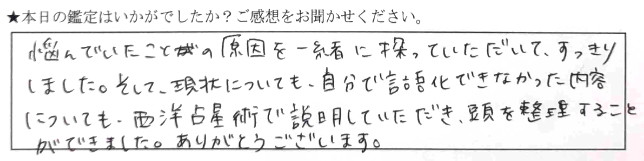 ★本日の鑑定はいかがでしたか？ご感想をお聞かせください。
悩んでいたことの原因を一緒に探っていただいて、すっきり
しました。そして、現状についても、自分で言語化できなかった内容
についても、西洋占星術で説明していただき、頭を整理すること
ができました。ありがとうございます。